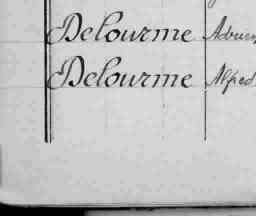 Delourme
Delourme Alfred